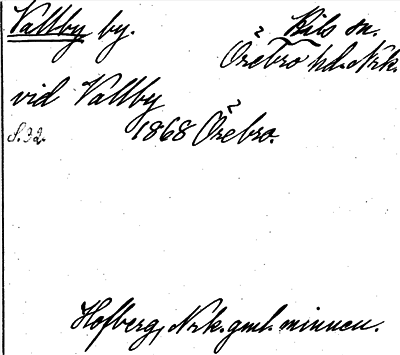 Vallby by. Kils sn.
Örebro hd. Nrk.
vid Vallby
S. 32. 1868 Örebro.
Hofberg, Nrk. gml. minnen.